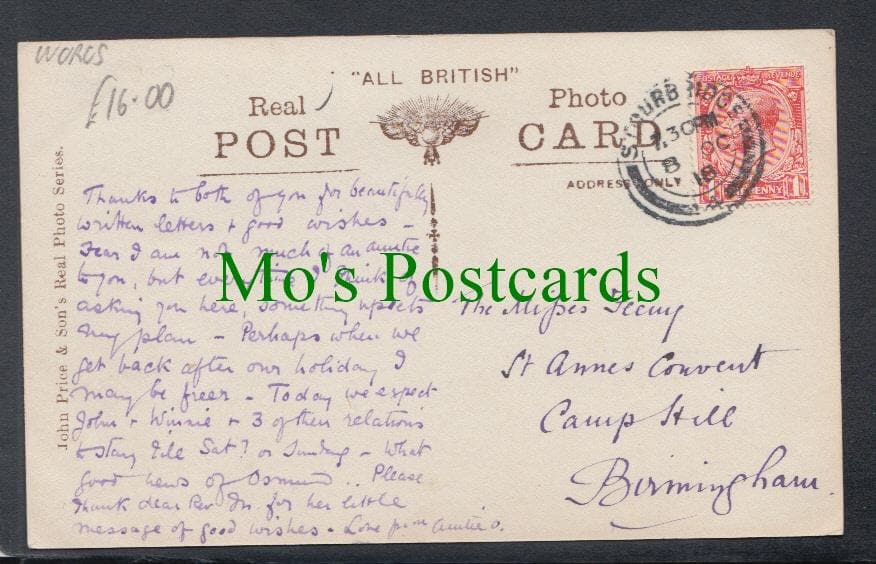 WORCS
£16.00
"ALL BRITISH"
Real Photo
POST CARD
ADDRESS ONLY
POSTAGE REVENUE
STOURBRIDGE
7.30 PM
8 OC
18
PENNY 1
John Price & Son's Real Photo Series.
Thanks to both of you for beautifully
written letters & good wishes –
Fear I am not much of an auntie
to you, but every time I think of
asking you here, something upsets
my plan – Perhaps when we
get back after our holiday I
may be freer – Today we expect
John & Winnie & 3 of their relations
to stay till Sat? or Sunday – What
good news of Osmund .. Please
thank dear Rev. Mr. for her little
message of good wishes – Love from Auntie O.
The Misses Feeny
St Annes Convent
Camp Hill
Birmingham
Mo's Postcards